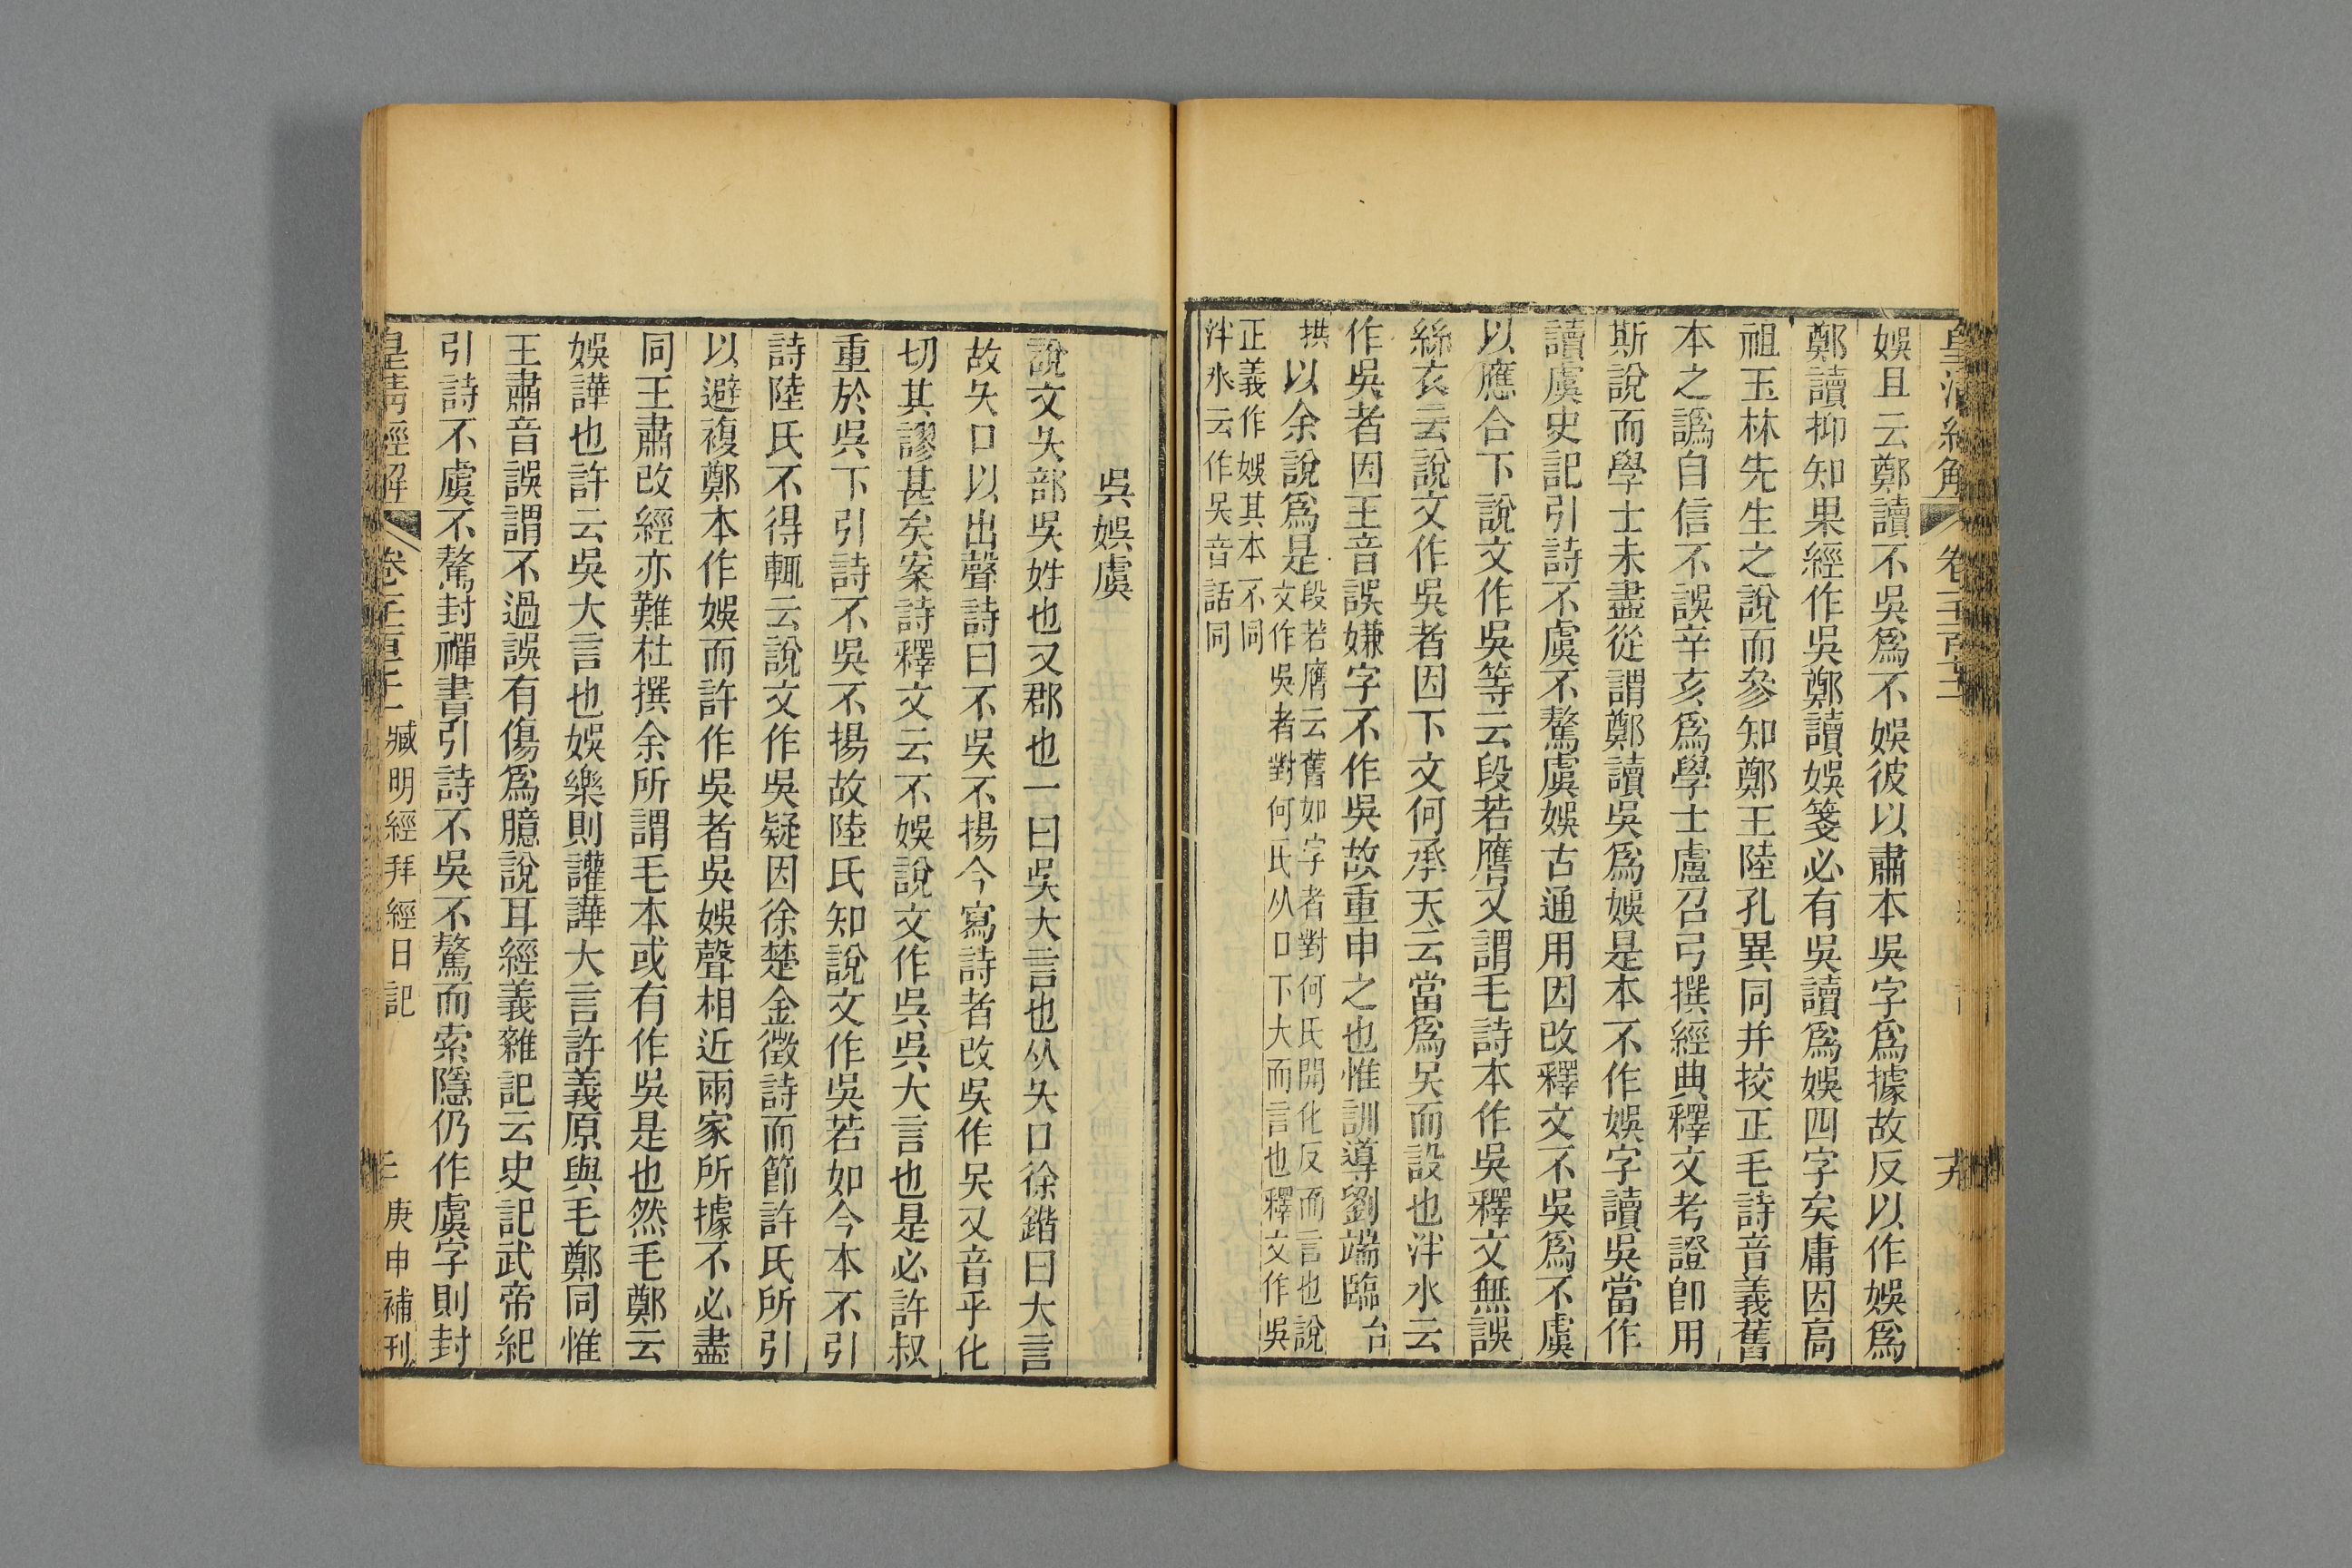 娛且云鄭讀不吳爲不娛彼以肅本吳字爲據故反以作娛爲
鄭讀抑知果經作吳鄭讀娛箋必有吳讀爲娛四字矣庸因高
祖玉林先生之說而參知鄭王陸孔異同并挍正毛詩音義舊
本之譌自信不誤辛亥爲學士盧召弓撰經典釋文考證卽用
斯說而學士未盡從謂鄭讀吳爲娛是本不作娛字讀吳當作
讀虞史記引詩不虞不驁虞娛古通用因改釋文不吳爲不虞
以應合下說文作吳等云段若膺又謂毛詩本作吳釋文無誤
絲衣云說文作吳者因下文何承天云當爲吴而設也泮水云
作吳者因王音誤嫌字不作吳故重申之也惟訓導劉端臨台
拱以余說爲是
段若膺云舊如字者對何氏開化反而言也說
文作吳者對何氏从口下大而言也釋文作吳
正義作娛其本不同
泮水云作吴音話同
吳娛虞
說文夨部吳姓也又郡也一曰吳大言也从夨口徐鍇曰大言
故夨口以出聲詩曰不吳不揚今寫詩者改吳作吴又音乎化
切其謬甚矣案詩釋文云不娛說文作吳吳大言也是必許叔
重於吳下引詩不吳不揚故陸氏知說文作吳若如今本不引
詩陸氏不得輒云說文作吳疑因徐楚金徵詩而節許氏所引
以避複鄭本作娛而許作吳者吳娛聲相近兩家所據不必盡
同王肅改經亦難杜撰余所謂毛本或有作吳是也然毛鄭云
娛譁也許云吳大言也娛樂則讙譁大言許義原與毛鄭同惟
王肅音誤謂不過誤有傷爲臆說耳經義雜記云史記武帝紀
引詩不虞不驁封禪書引詩不吳不驁而索隱仍作虞字則封
皇清經解
臧明經拜經日記
庚申補刊